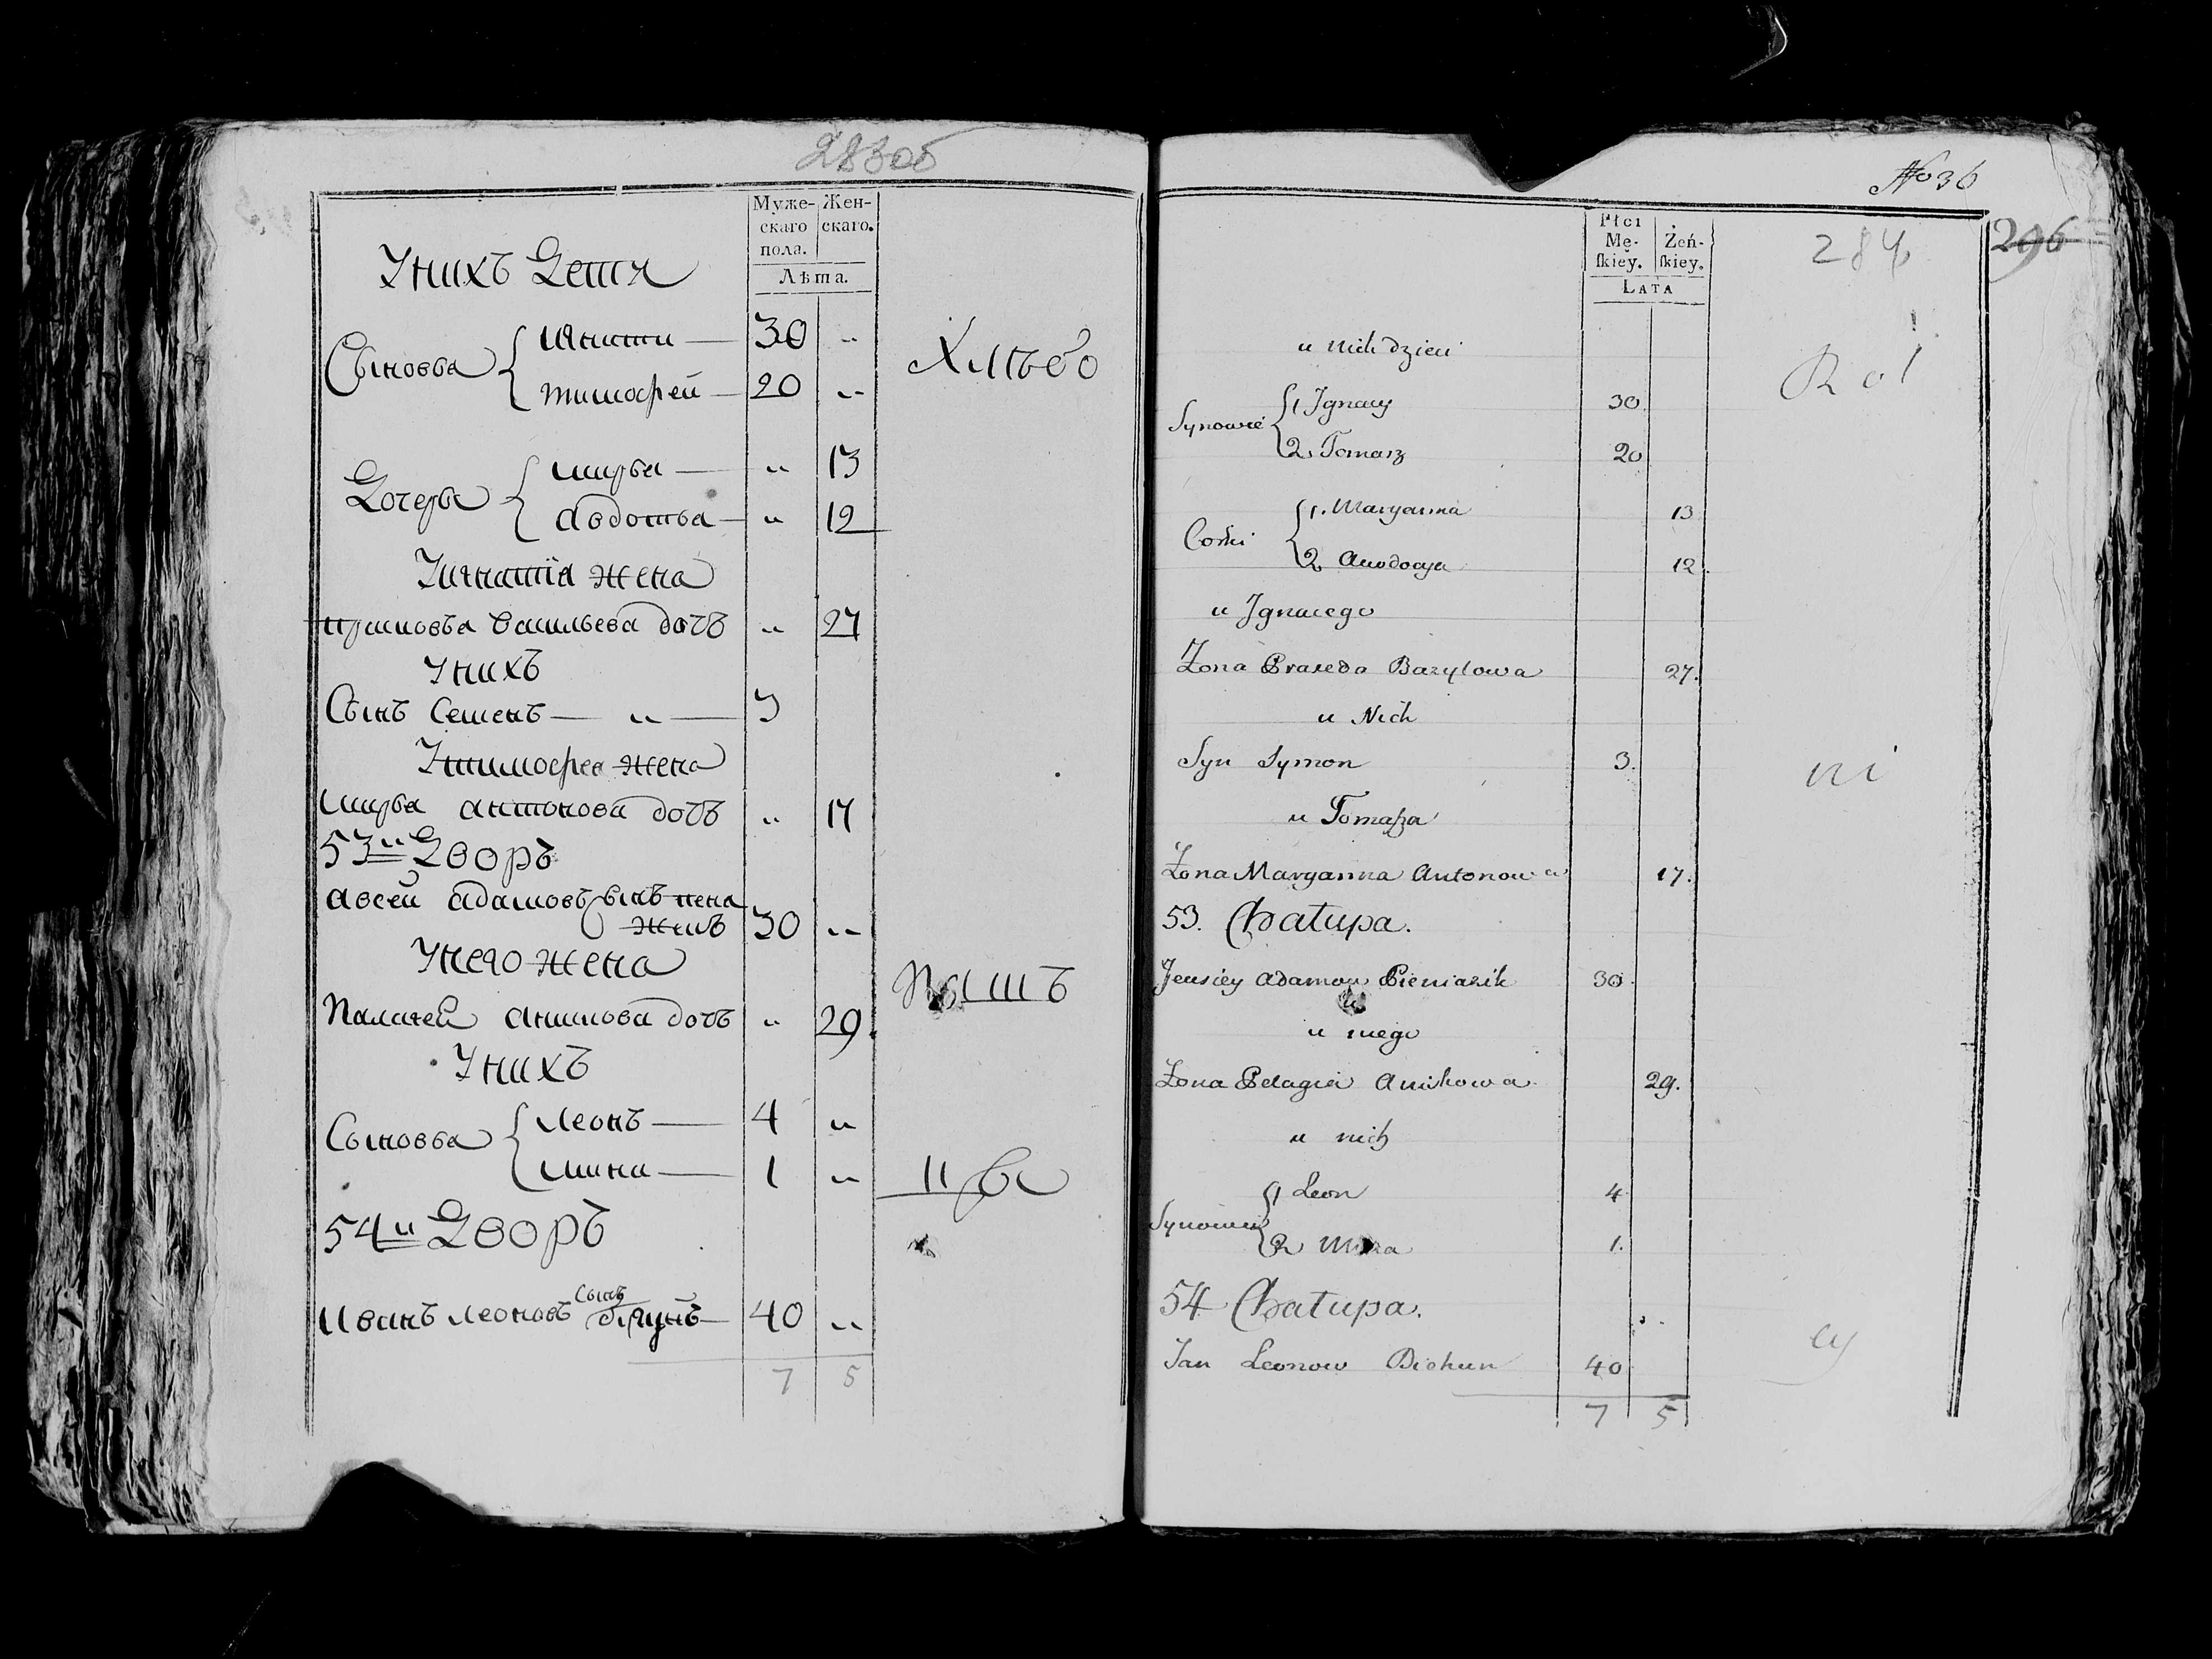 283об
Муже-
скаго
пола.
Жен-
скаго.
Лѣта.
Унихъ Дети
Сыновья { Игнати — 30 „
Тимофей — 20 „
Хлѣбо
Дочерья { Марья — „ 13
Авдотья — „ 12
Уигнатїя жена
Васильева дочь „ 27
Унихъ
Сынъ Семенъ — „ — 3
Утимофея жена
Марья Антонова дочь „ 17
53й Дворъ
Авсей Адамовъ сынъ
30 „
Унего жена
Пашъ
Палагей дочь „ 29
Унихъ
Сыновья { Леонъ — 4 „
Мина — 1 „
цы
54й Дворъ
Иванъ Леоновъ сынъ 40 „
7 5
No 36
296
Płci
Mę-
ſkiey.
Żeń-
ſkiey.
LATA
284
u nich dzieci
Rol
Synowie { 1 Jgnacy 30.
2. Tomasz 20
Corki { 1. Maryanna 13
2 Awdocya 12.
u Jgnacego
Żona Praxeda Bazylowa 27.
u Nich
Syn Symon 3.
ni
u Tomaſza
Żona Maryanna Antonowa 17.
53. Chałupa.
Jeusiey Adamow Pieniazik 30.
u niego
Żona Pelagia Anikowa 29.
u nich
Synowie { 1 Leon 4
2 Mina 1.
54 Chałupa.
cy
Jan Leonow Biohun 40
7 5